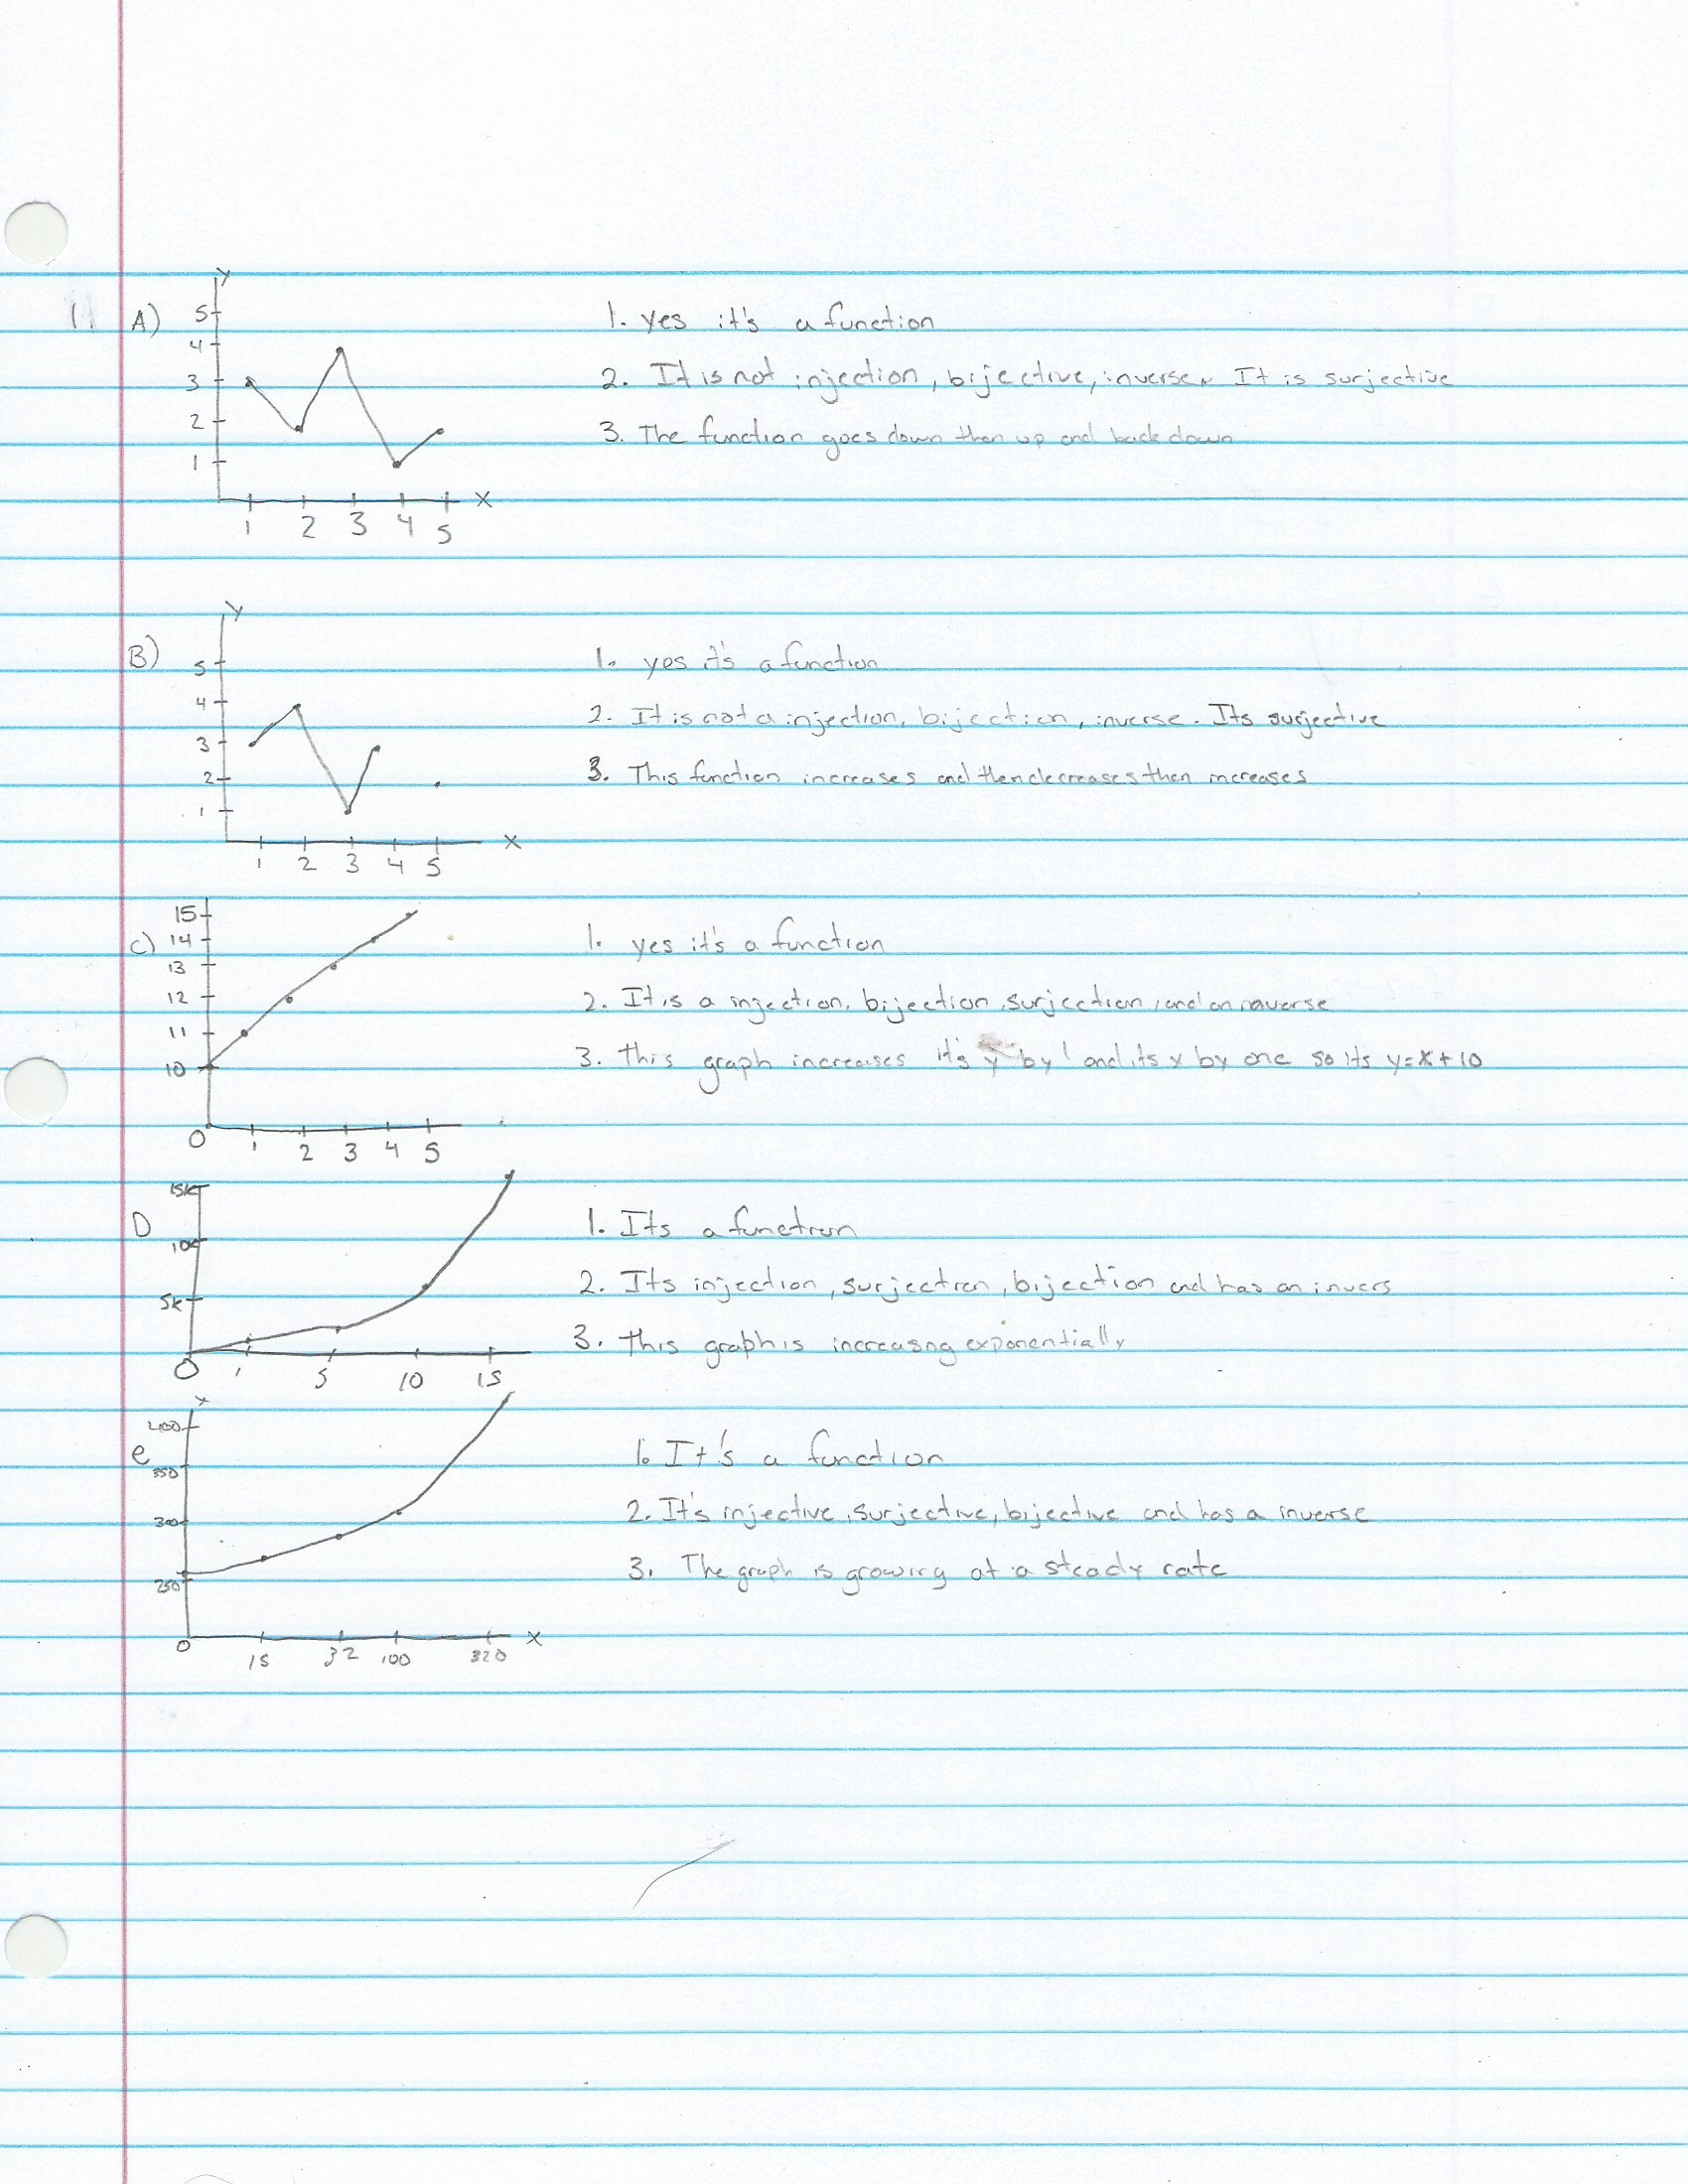 1. A)
y
5
4
3
2
1
1 2 3 4 5 X
1. yes it's a function
2. It is not injection, bijective, inverse. It is surjective
3. The function goes down then up and back down
B)
y
5
4
3
2
1
1 2 3 4 5 X
1. yes it's a function
2. It is not a injection, bijection, inverse. Its surjective
3. This function increases and then decreases then increases
C)
15
14
13
12
11
10
0 1 2 3 4 5
1. yes it's a function
2. It is a injection, bijection, surjection, and an inverse
3. This graph increases it's y by 1 and its x by one so its y=x+10
D
15k
10k
5k
0 1 5 10 15
1. Its a function
2. Its injection, surjection, bijection and has an invers
3. This graph is increasing exponentially
e
400
350
300
250
0 15 32 100 320 X
1. It's a function
2. It's injective, surjective, bijective and has a inverse
3. The graph is growing at a steady rate